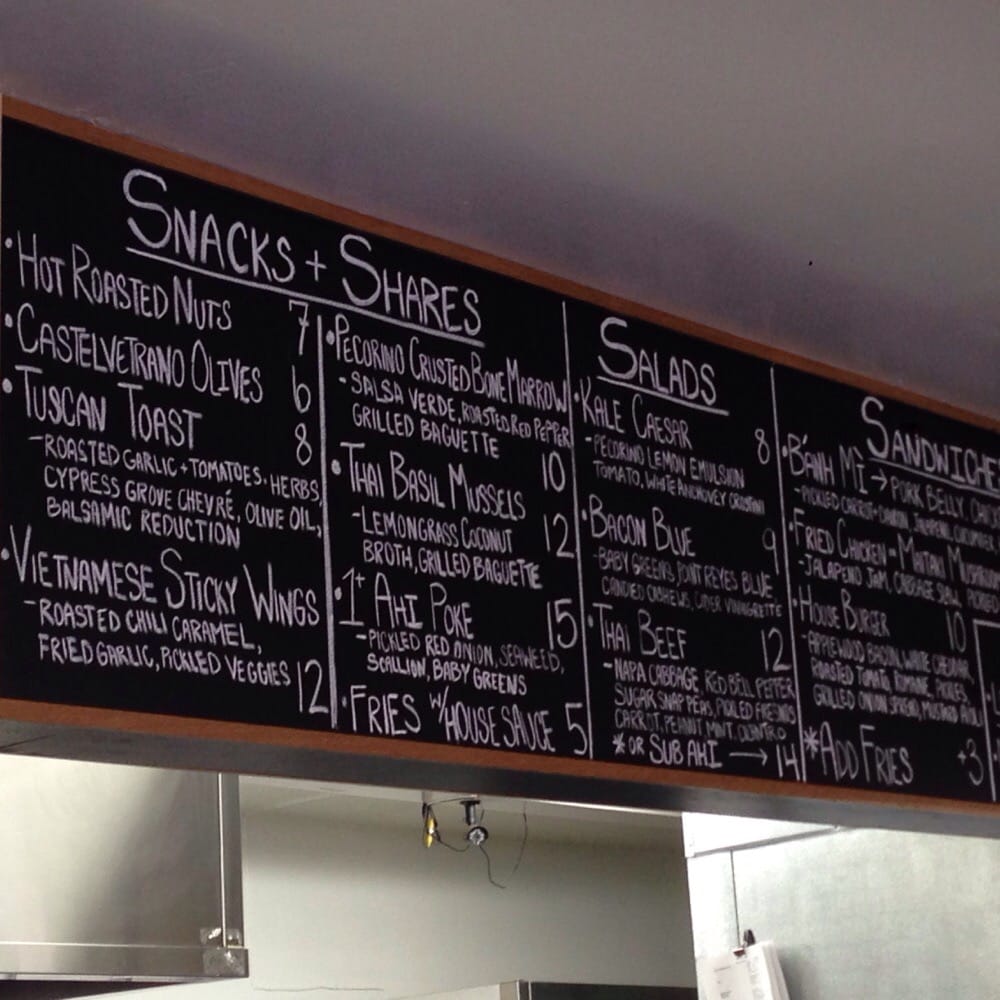 SNACKS + SHARES
• HOT ROASTED NUTS 7
• CASTELVETRANO OLIVES 6
• TUSCAN TOAST 8
- ROASTED GARLIC + TOMATOES, HERBS,
CYPRESS GROVE CHEVRÉ, OLIVE OIL,
BALSAMIC REDUCTION
• VIETNAMESE STICKY WINGS
- ROASTED CHILI CARAMEL,
FRIED GARLIC, PICKLED VEGGIES 12
• PECORINO CRUSTED BONE MARROW
- SALSA VERDE, ROASTED RED PEPPER
GRILLED BAGUETTE 10
• THAI BASIL MUSSELS
- LEMONGRASS COCONUT 12
BROTH, GRILLED BAGUETTE
• 1+ AHI POKE 15
- PICKLED RED ONION, SEAWEED,
SCALLION, BABY GREENS
• FRIES W/HOUSE SAUCE 5
SALADS
• KALE CAESAR 8
- PECORINO LEMON EMULSION
TOMATO, WHITE ANCHOVY CROSTINI
• BACON BLUE 9
- BABY GREENS, POINT REYES BLUE,
CANDIED CASHEWS, CIDER VINAIGRETTE
• THAI BEEF 12
- NAPA CABBAGE, RED BELL PEPPER
SUGAR SNAP PEAS, PICKLED FRESNOS
CARROT, PEANUT, MINT, CILANTRO
* OR SUB AHI → 14
SANDWICHE
• BÁNH MÌ → PORK BELLY
- PICKLED CARROT + DAIKON, JALAPENO, CUCUMBER
• FRIED CHICKEN
- JALAPENO JAM, CABBAGE SLAW,
• HOUSE BURGER 10
- APPLEWOOD BACON, WHITE CHEDDAR,
ROASTED TOMATO, ROMAINE, PICKLES,
GRILLED ONION SPREAD, MUSTARD AIOLI
* ADD FRIES +3